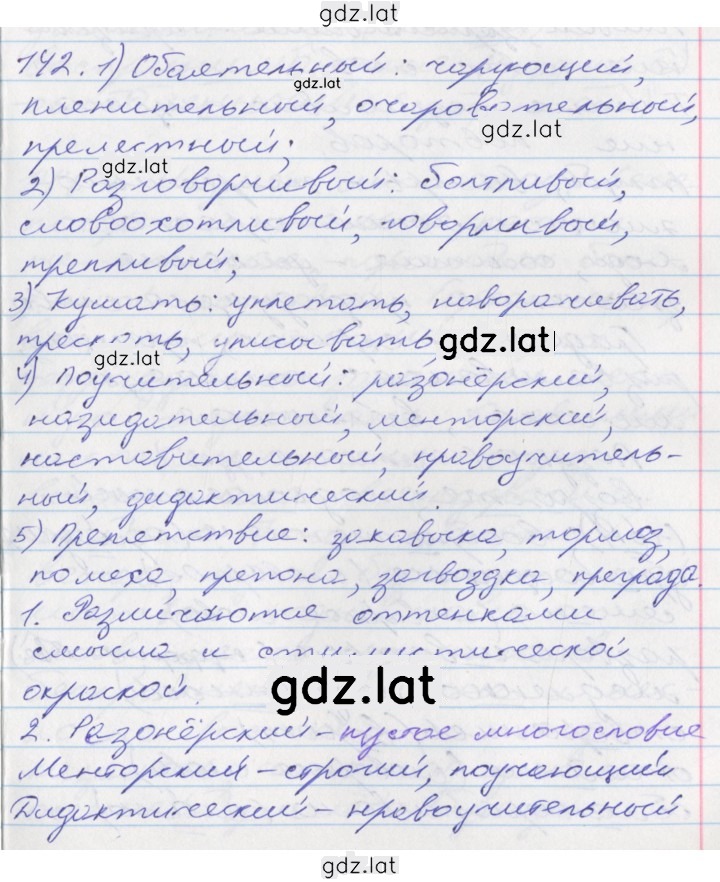 gdz.lat
142. 1) Обаятельный: чарующий,
gdz.lat
пленительный, очаровательный,
gdz.lat
прелестный;
gdz.lat
2) Разговорчивый: болтливый,
словоохотливый, говорливый,
трепливый;
3) Кушать: уплетать, наворачивать,
трескать, уписывать,
gdz.lat
gdz.lat
4) Поучительный: резонёрский,
назидательный, менторский,
наставительный, нравоучитель-
ный, дидактический.
5) Препятствие: закавыка, тормоз,
помеха, препона, загвоздка, преграда.
1. Различаются оттенками
смысла и стилистической
окраской.
gdz.lat
2. Резонёрский – пустое многословие
Менторский – строгий, поучающий
Дидактический – нравоучительный
gdz.lat